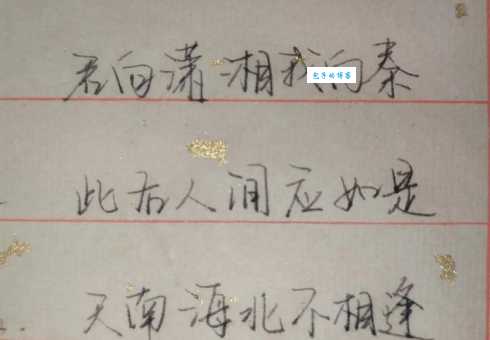 君向潇湘我向秦
此后人间应如是
天南海北不相逢